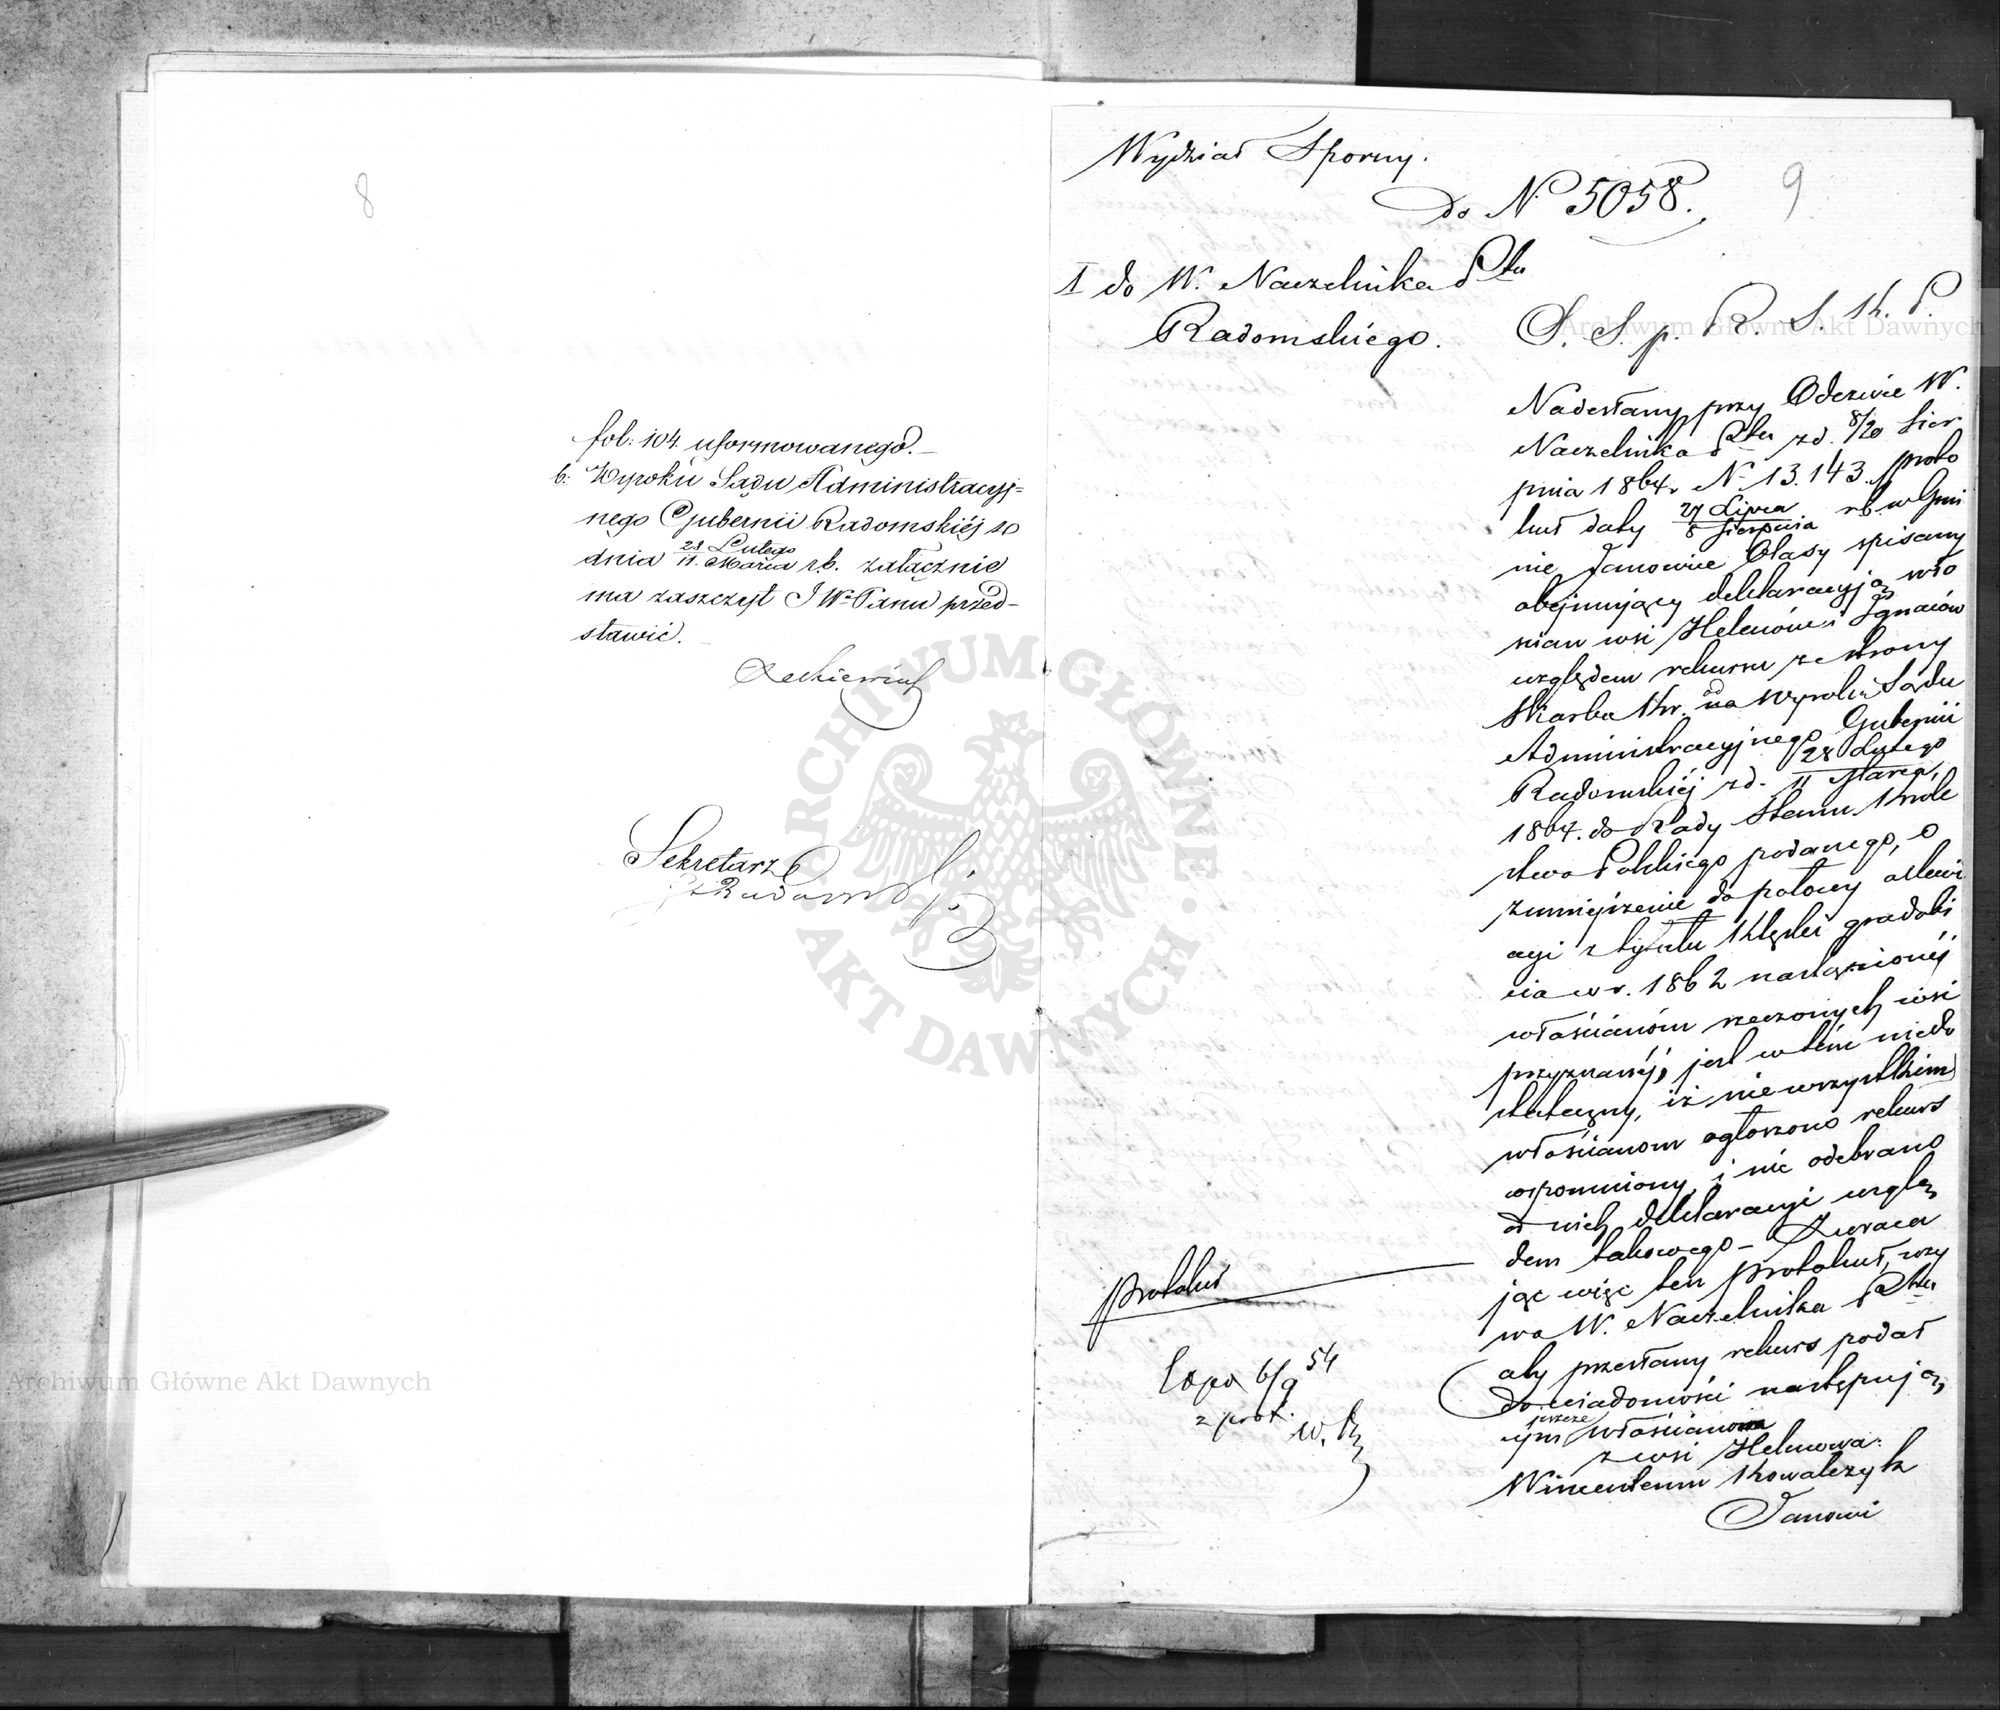 8
fol: 104 uformowanego.—
b: Wyroku Sądu Administracyj=
nego Gubernii Radomskiéj z
dnia 28 Lutego
11. Marca r.b. załącznie
ma zaszczyt JW. Panu przed-
stawić.—
Sekretarz
Wydział Sporny.
do N. 5058.
9
I do W. Naczelnika Ptu
Radomskiego.
S. S. p. R. S. K. P.
Nadesłany przy Odezwie W.
Naczelnika Ptu z d. 8/20 Sier
pnia 1864 r. N. 13.143. proto
kuł daty 27 Lipca
8 Sierpnia rb. w Gmi
nie Janowice Olasy spisany
obejmujący deklaracyją wło
ścian wsi Helenów i Ignaców
względem rekursu ze strony
Skarbu Kr. od wyroku Sądu
Administracyjnego Gubernii
Radomskiéj z d. 28 Lutego
11 Marca
1864. do Rady Stanu Króle
stwa Polskiego podanego, o
zmniejszenie do połowy allewi
acyi z tytułu klęski gradobi
cia w r. 1862 nastąpionéj
włościanom rzeczonych wsi
przyznanéj, jest w tém niedo
stateczny, iż nie wszystkim
włościanom ogłoszono rekurs
wspomniony, i nie odebrano
od nich deklaracyi wzglę
dem takowego — Zwraca
jąc więc ten protokuł, wzy
wa W. Naczelnika Ptu
aby przesłany rekurs podał
do wiadomości następują
cym jeszcze włościanom
z wsi Helenowa:
Wincentemu Kowalczyk
Janowi
protokuł
Expo 6/9 54
z prot.
Archiwum Główne Akt Dawnych
Archiwum Główne Akt Dawnych
ARCHIWUM GŁÓWNE
AKT DAWNYCH